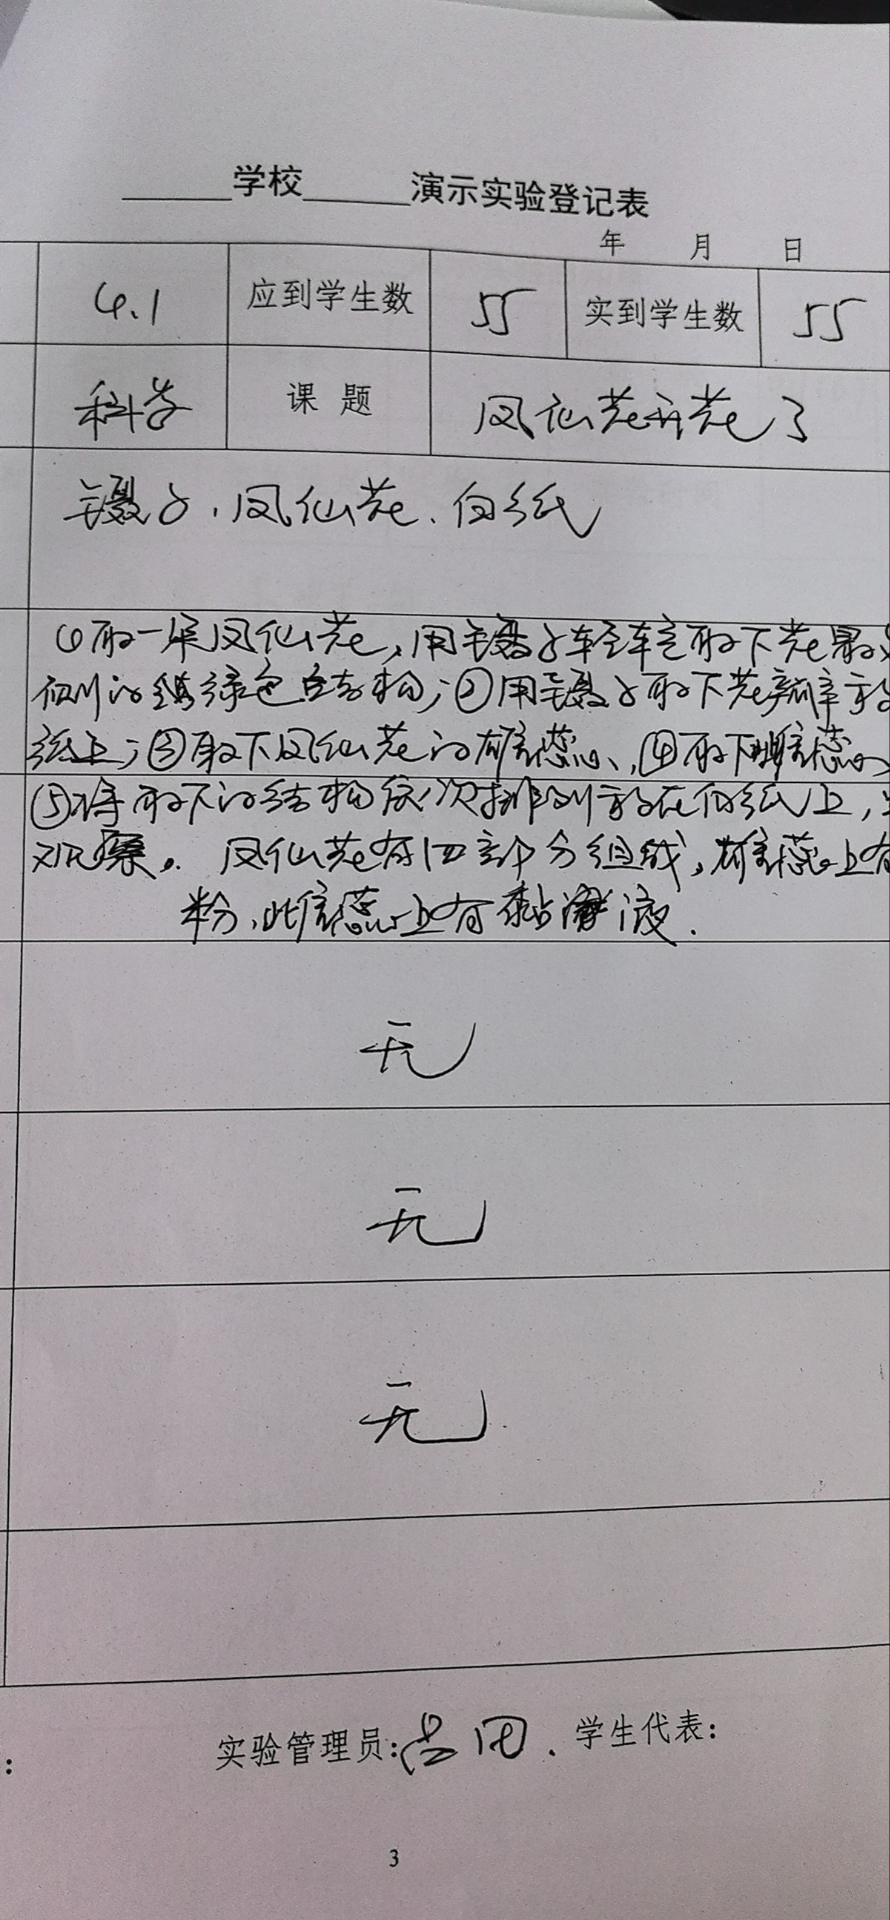 ______学校______演示实验登记表
年 月 日
4.1 应到学生数 55 实到学生数 55
科学 课题 凤仙花开花了
镊子、凤仙花、白纸
①取一朵凤仙花,用镊子轻轻取下花最
侧的绿色结构;②用镊子取下花瓣
纸上;③取下凤仙花的雄蕊、④取下雌蕊
⑤将取下的结构依次排列放在白纸上,
观察。凤仙花有四部分组成,雄蕊上有
粉,雌蕊上有黏液.
无
无
无
: 实验管理员: 学生代表:
3